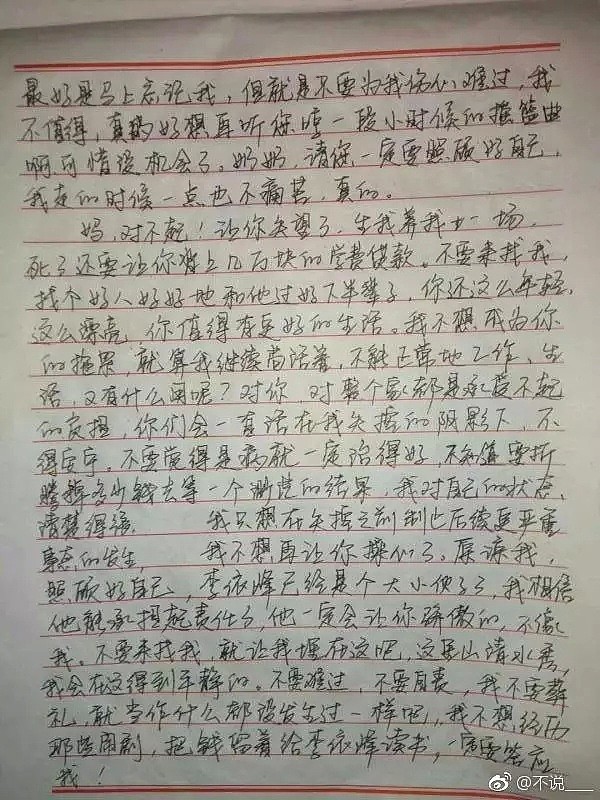 最好是马上忘记我，但就是不要为我伤心难过，我
不值得，真的好想再听您唱一段小时候的摇篮曲
啊可惜没机会了。奶奶，请您一定要照顾好自己，
我走的时候一点也不痛苦，真的。
妈，对不起！让你失望了，生我养我廿一场，
死了还要让你难上几万块的学费贷款。不要来找我，
找个好人好好地和他过好下半辈子，你还这么年轻，
这么漂亮，你值得有更好的生活。我不想成为你
的拖累，就算我继续苟活着，不能正常地工作、生
活，又有什么用呢？对你，对整个家都是承受不起
的负担，你们会一直活在我失控的阴影下，不
得安宁。不要觉得是病就一定治得好，不知道要折
腾掉多少钱去等一个渺茫的结果，我对自己的状态
清楚得很 我只想在失控之前制止后续更严重
事态的发生， 我不想再让你操心了。原谅我，
照顾好自己，李依峰已经是个大小伙子了，我相信
他能承担起责任了，他一定会让你骄傲的，不像
我。不要来找我，就让我埋在这吧，这里山清水秀，
我会在这得到平静的。不要难过，不要自责，我不要葬
礼，就当作什么都没发生过一样吧，我不想经历
那些闹剧，把钱留着给李依峰读书，一定要答应
我！
@不说___